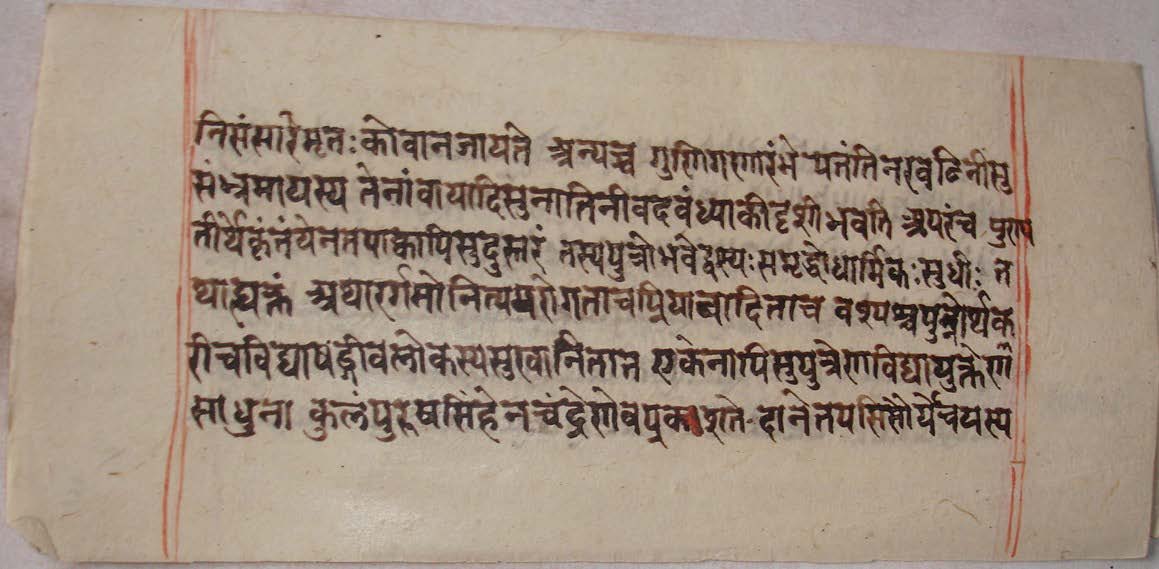 निसंसारेमृतःकोवानजायते अन्यच्च गुणिगणारंभे पतंतिनखवटिनीसु
संभ्रमाद्यस्य तेनांवायादिसुनातिनीवदवंध्याकीदृशीभवति अपरंच पुराप
तीर्थेकृतंयेनतपःक्वापिसुदुस्तरं तस्यपुत्रोभवेद्वस्यःसमृद्धोधार्मिकःसुधीः त
थाह्युक्तं अथारर्गमोनित्यमरोगताचप्रियावादिताच वश्यश्चपुत्रोर्थक
रीचविद्याषड्जीवलोकस्यसुखानितात एकेनापिसुपुत्रेणविद्यायुक्तेण
साधुना कुलंपुरूषसिंहेनचंद्रेणेवप्रकाशते दानेतपसिसौर्येचयस्य